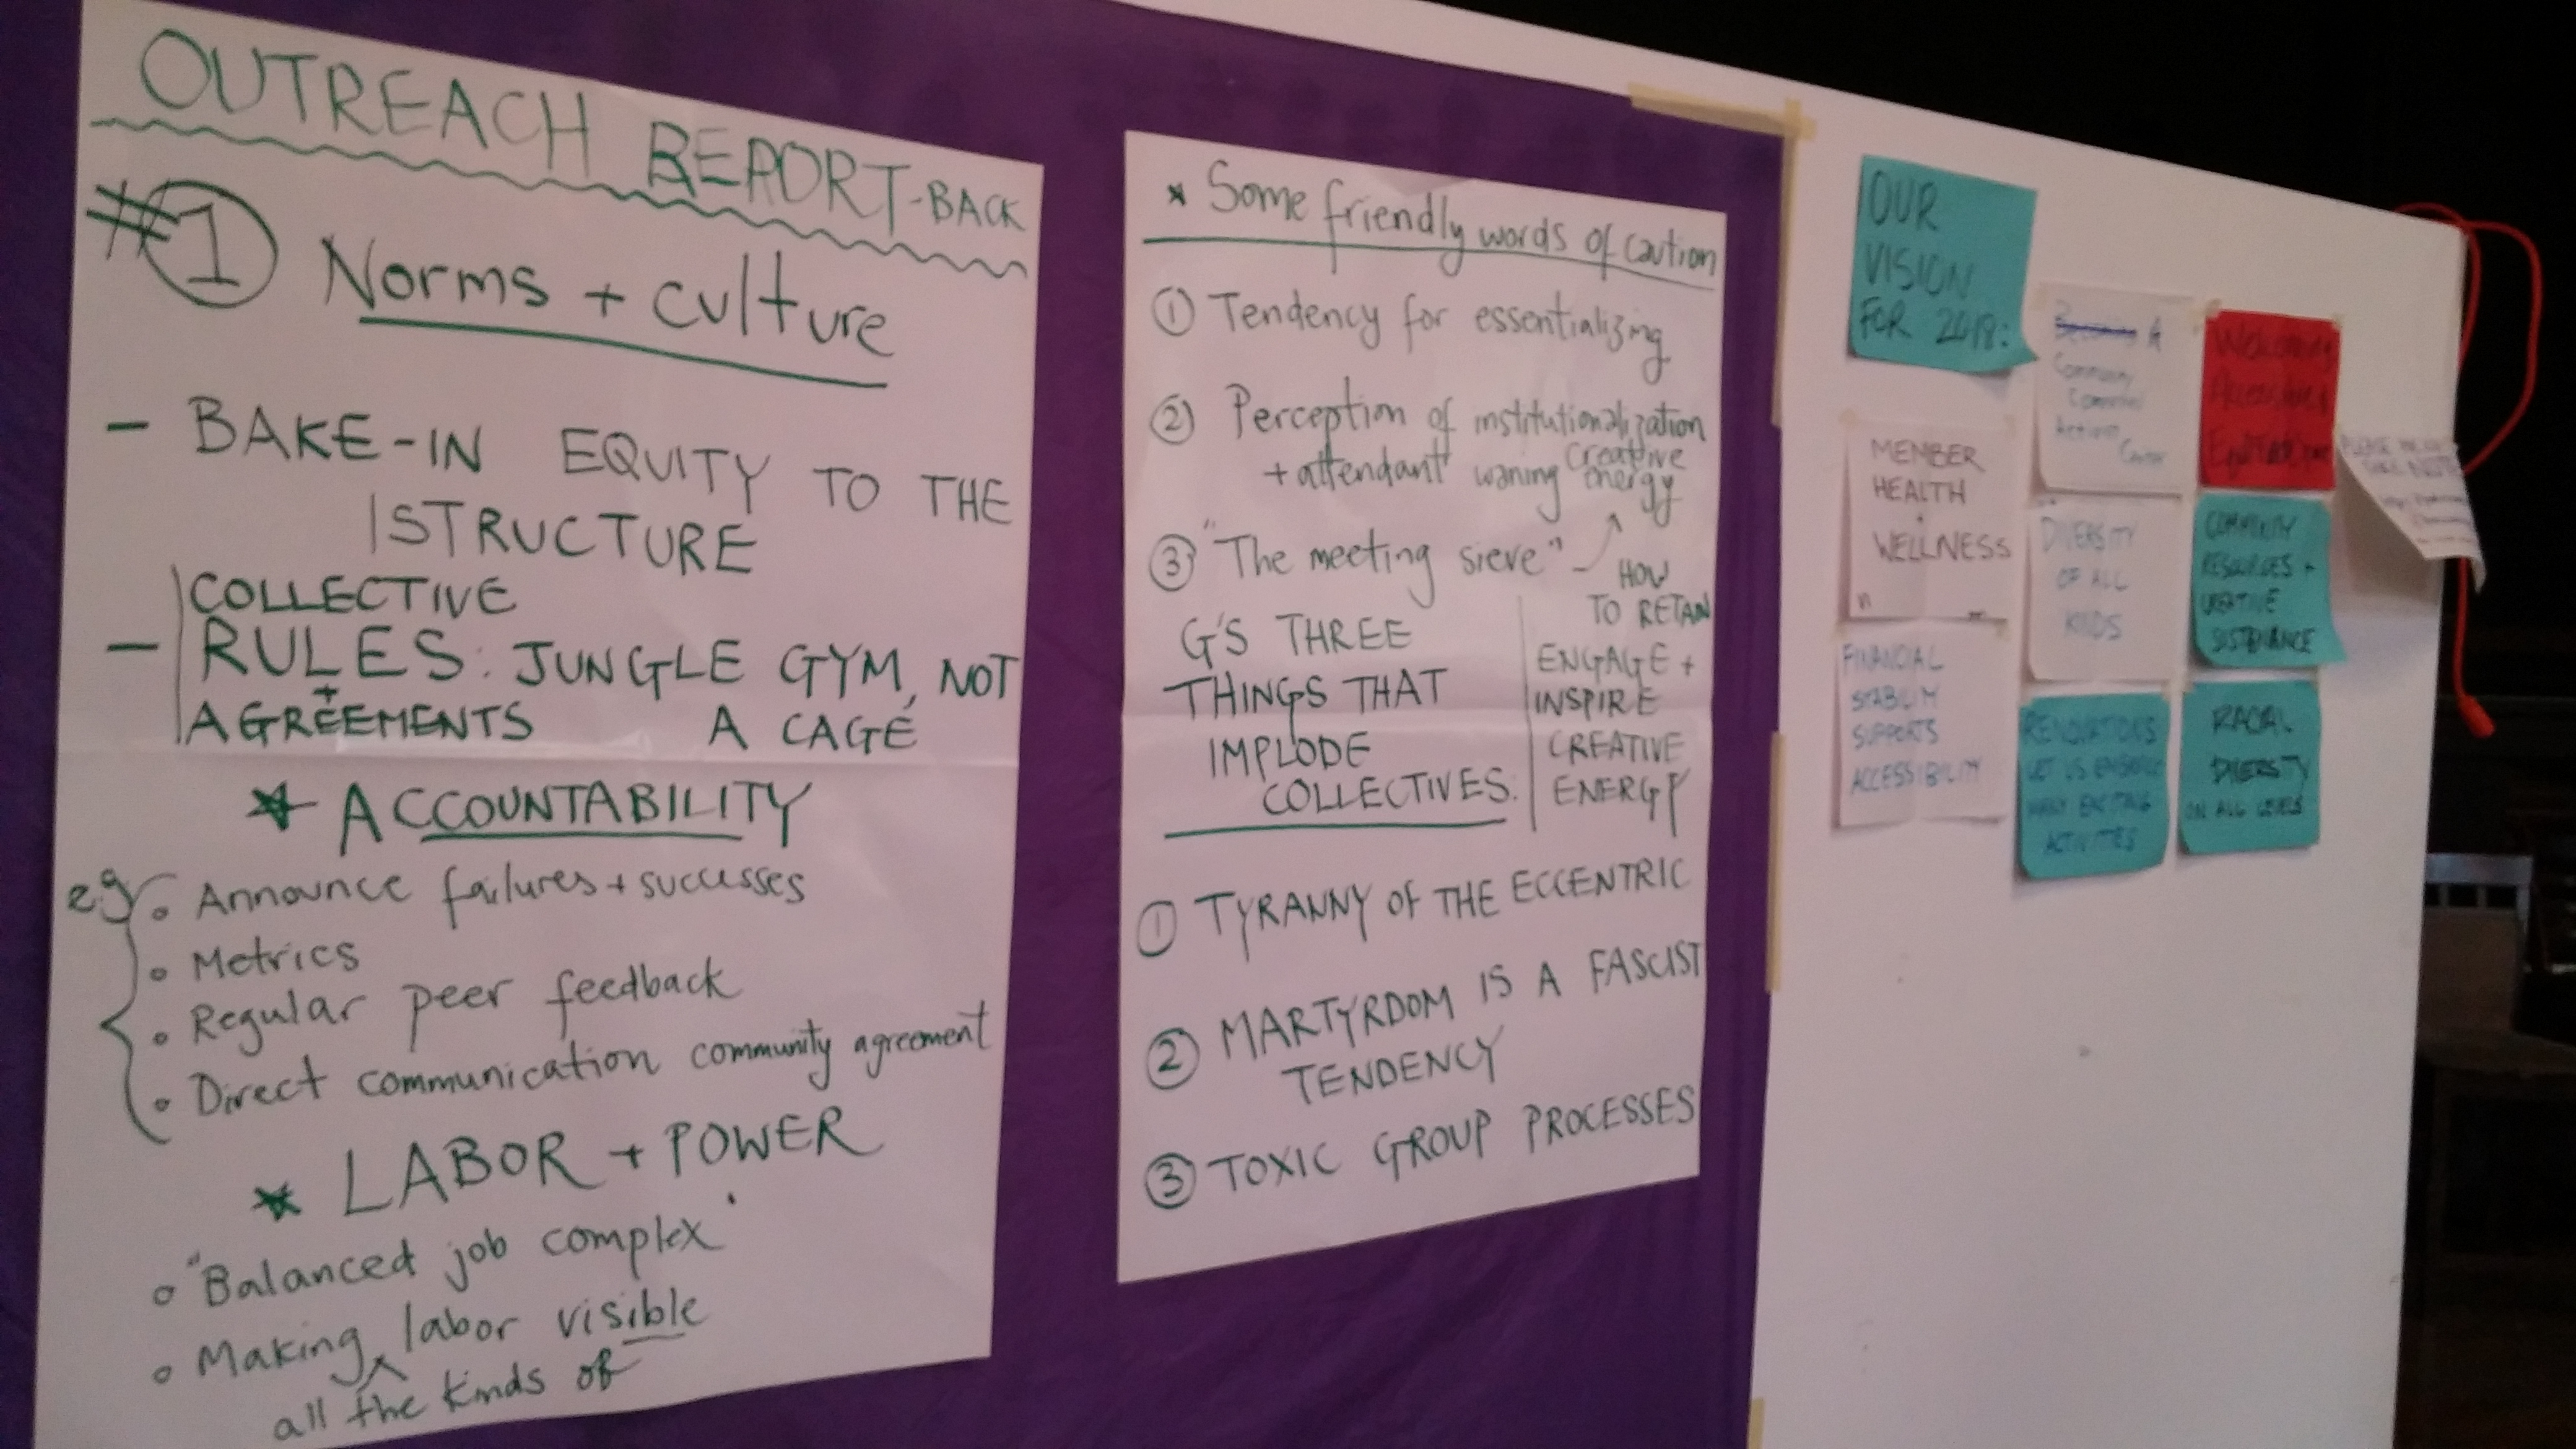 OUTREACH REPORT-BACK
#1 Norms + culture
- BAKE-IN EQUITY TO THE
STRUCTURE
COLLECTIVE
- RULES: JUNGLE GYM, NOT
+
AGREEMENTS A CAGE
★ ACCOUNTABILITY
e.g. • Announce failures + successes
• Metrics
• Regular peer feedback
• Direct communication community agreement
★ LABOR + POWER
• "Balanced job complex"
• Making ^ labor visible
all the kinds of
★ Some friendly words of caution
① Tendency for essentializing
② Perception of institutionalization
+ attendant waning creative
energy
③ "The meeting sieve" -
HOW
TO RETAIN
ENGAGE +
INSPIRE
CREATIVE
ENERGY
G'S THREE
THINGS THAT
IMPLODE
COLLECTIVES:
① TYRANNY OF THE ECCENTRIC
② MARTYRDOM IS A FASCIST
TENDENCY
③ TOXIC GROUP PROCESSES
OUR
VISION
FOR 2018:
MEMBER
HEALTH
+
WELLNESS
FINANCIAL
STABILITY
SUPPORTS
ACCESSIBILITY
A
Community
Center
DIVERSITY
OF ALL
KINDS
RENOVATIONS
LET US
MANY EXCITING
ACTIVITIES
Welcoming
COMMUNITY
RESOURCES +
CREATIVE
SUSTENANCE
RACIAL
DIVERSITY
ON ALL LEVELS